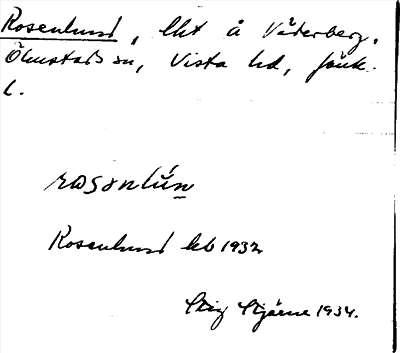 Rosenlund, lht å Väterberg,
Ölmstads sn, Vista hd, Jönk.
l.
rosənlún
Rosenlund kb 1932
Stig Stjärne 1934.